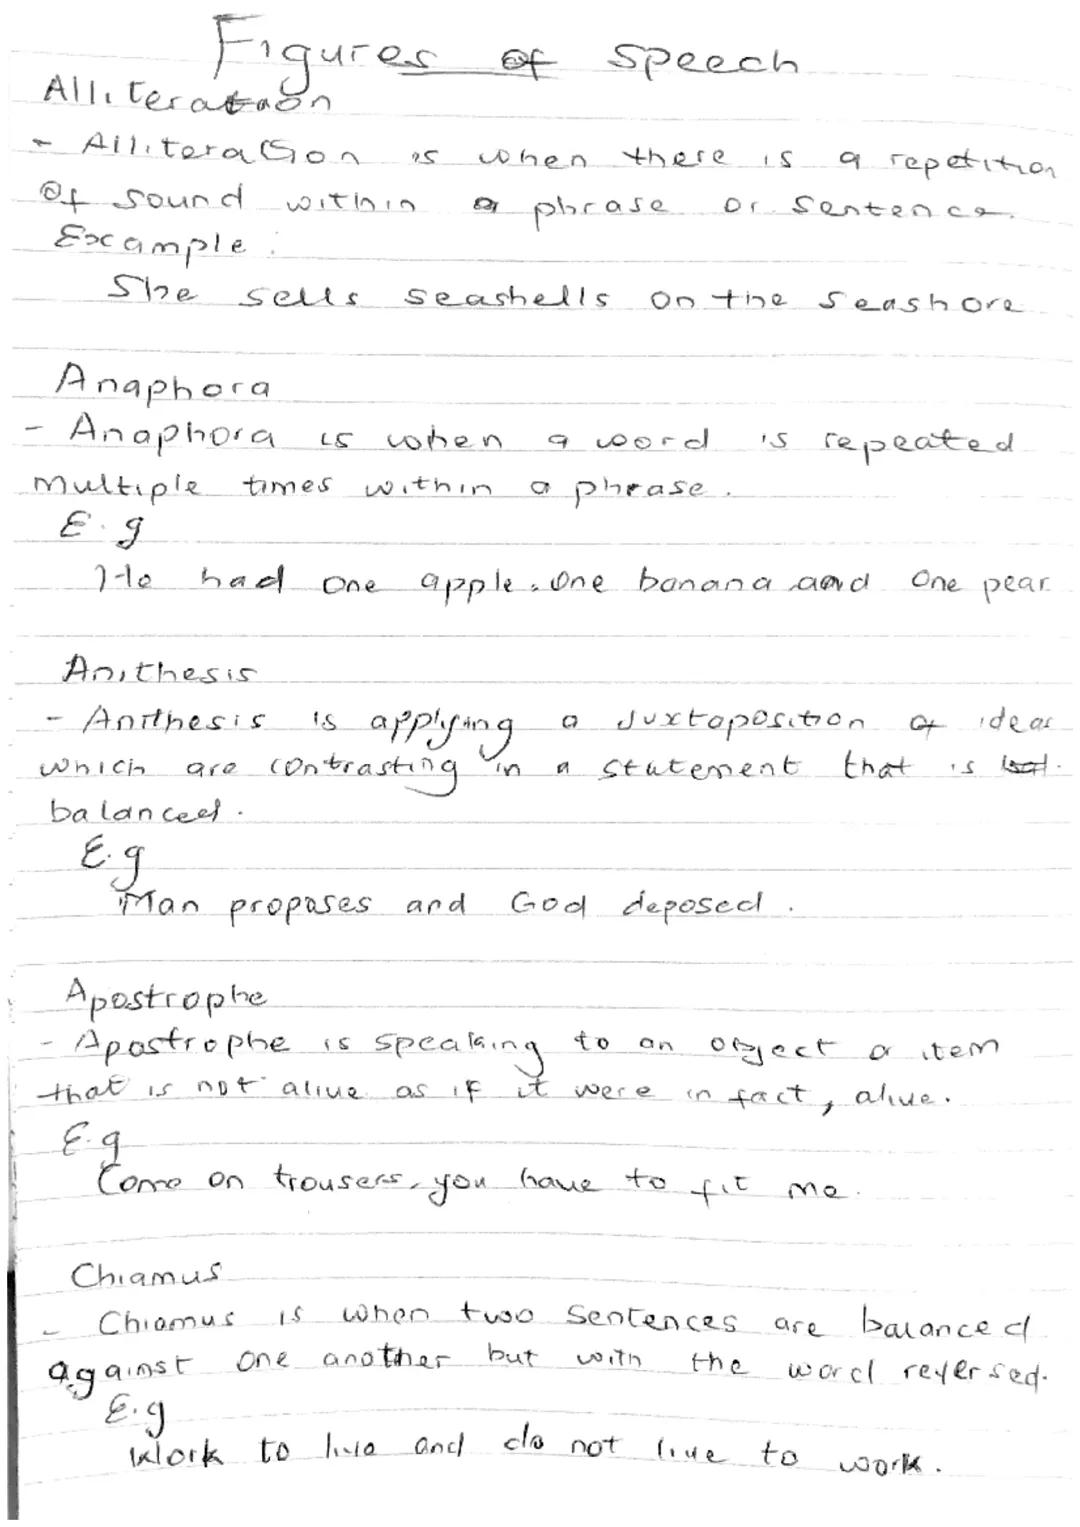 Figures of speech
Alliteration
- Alliteration is when there is a repetition
of sound within a phrase or sentence.
Example :
She sells seashells on the seashore
Anaphora
- Anaphora is when a word is repeated
multiple times within a phrase.
E.g
He had one apple, one banana and one pear
Anithesis
- Anithesis is applying a juxtaposition of ideas
which are contrasting in a statement that is
balanced.
E.g
Man proposes and God deposed.
Apostrophe
- Apostrophe is speaking to an object or item
that is not alive as if it were in fact, alive.
E.g
Come on trousers, you have to fit me.
Chiamus
- Chiamus is when two sentences are balanced
against one another but with the word reversed.
E.g
Work to live and do not live to work.